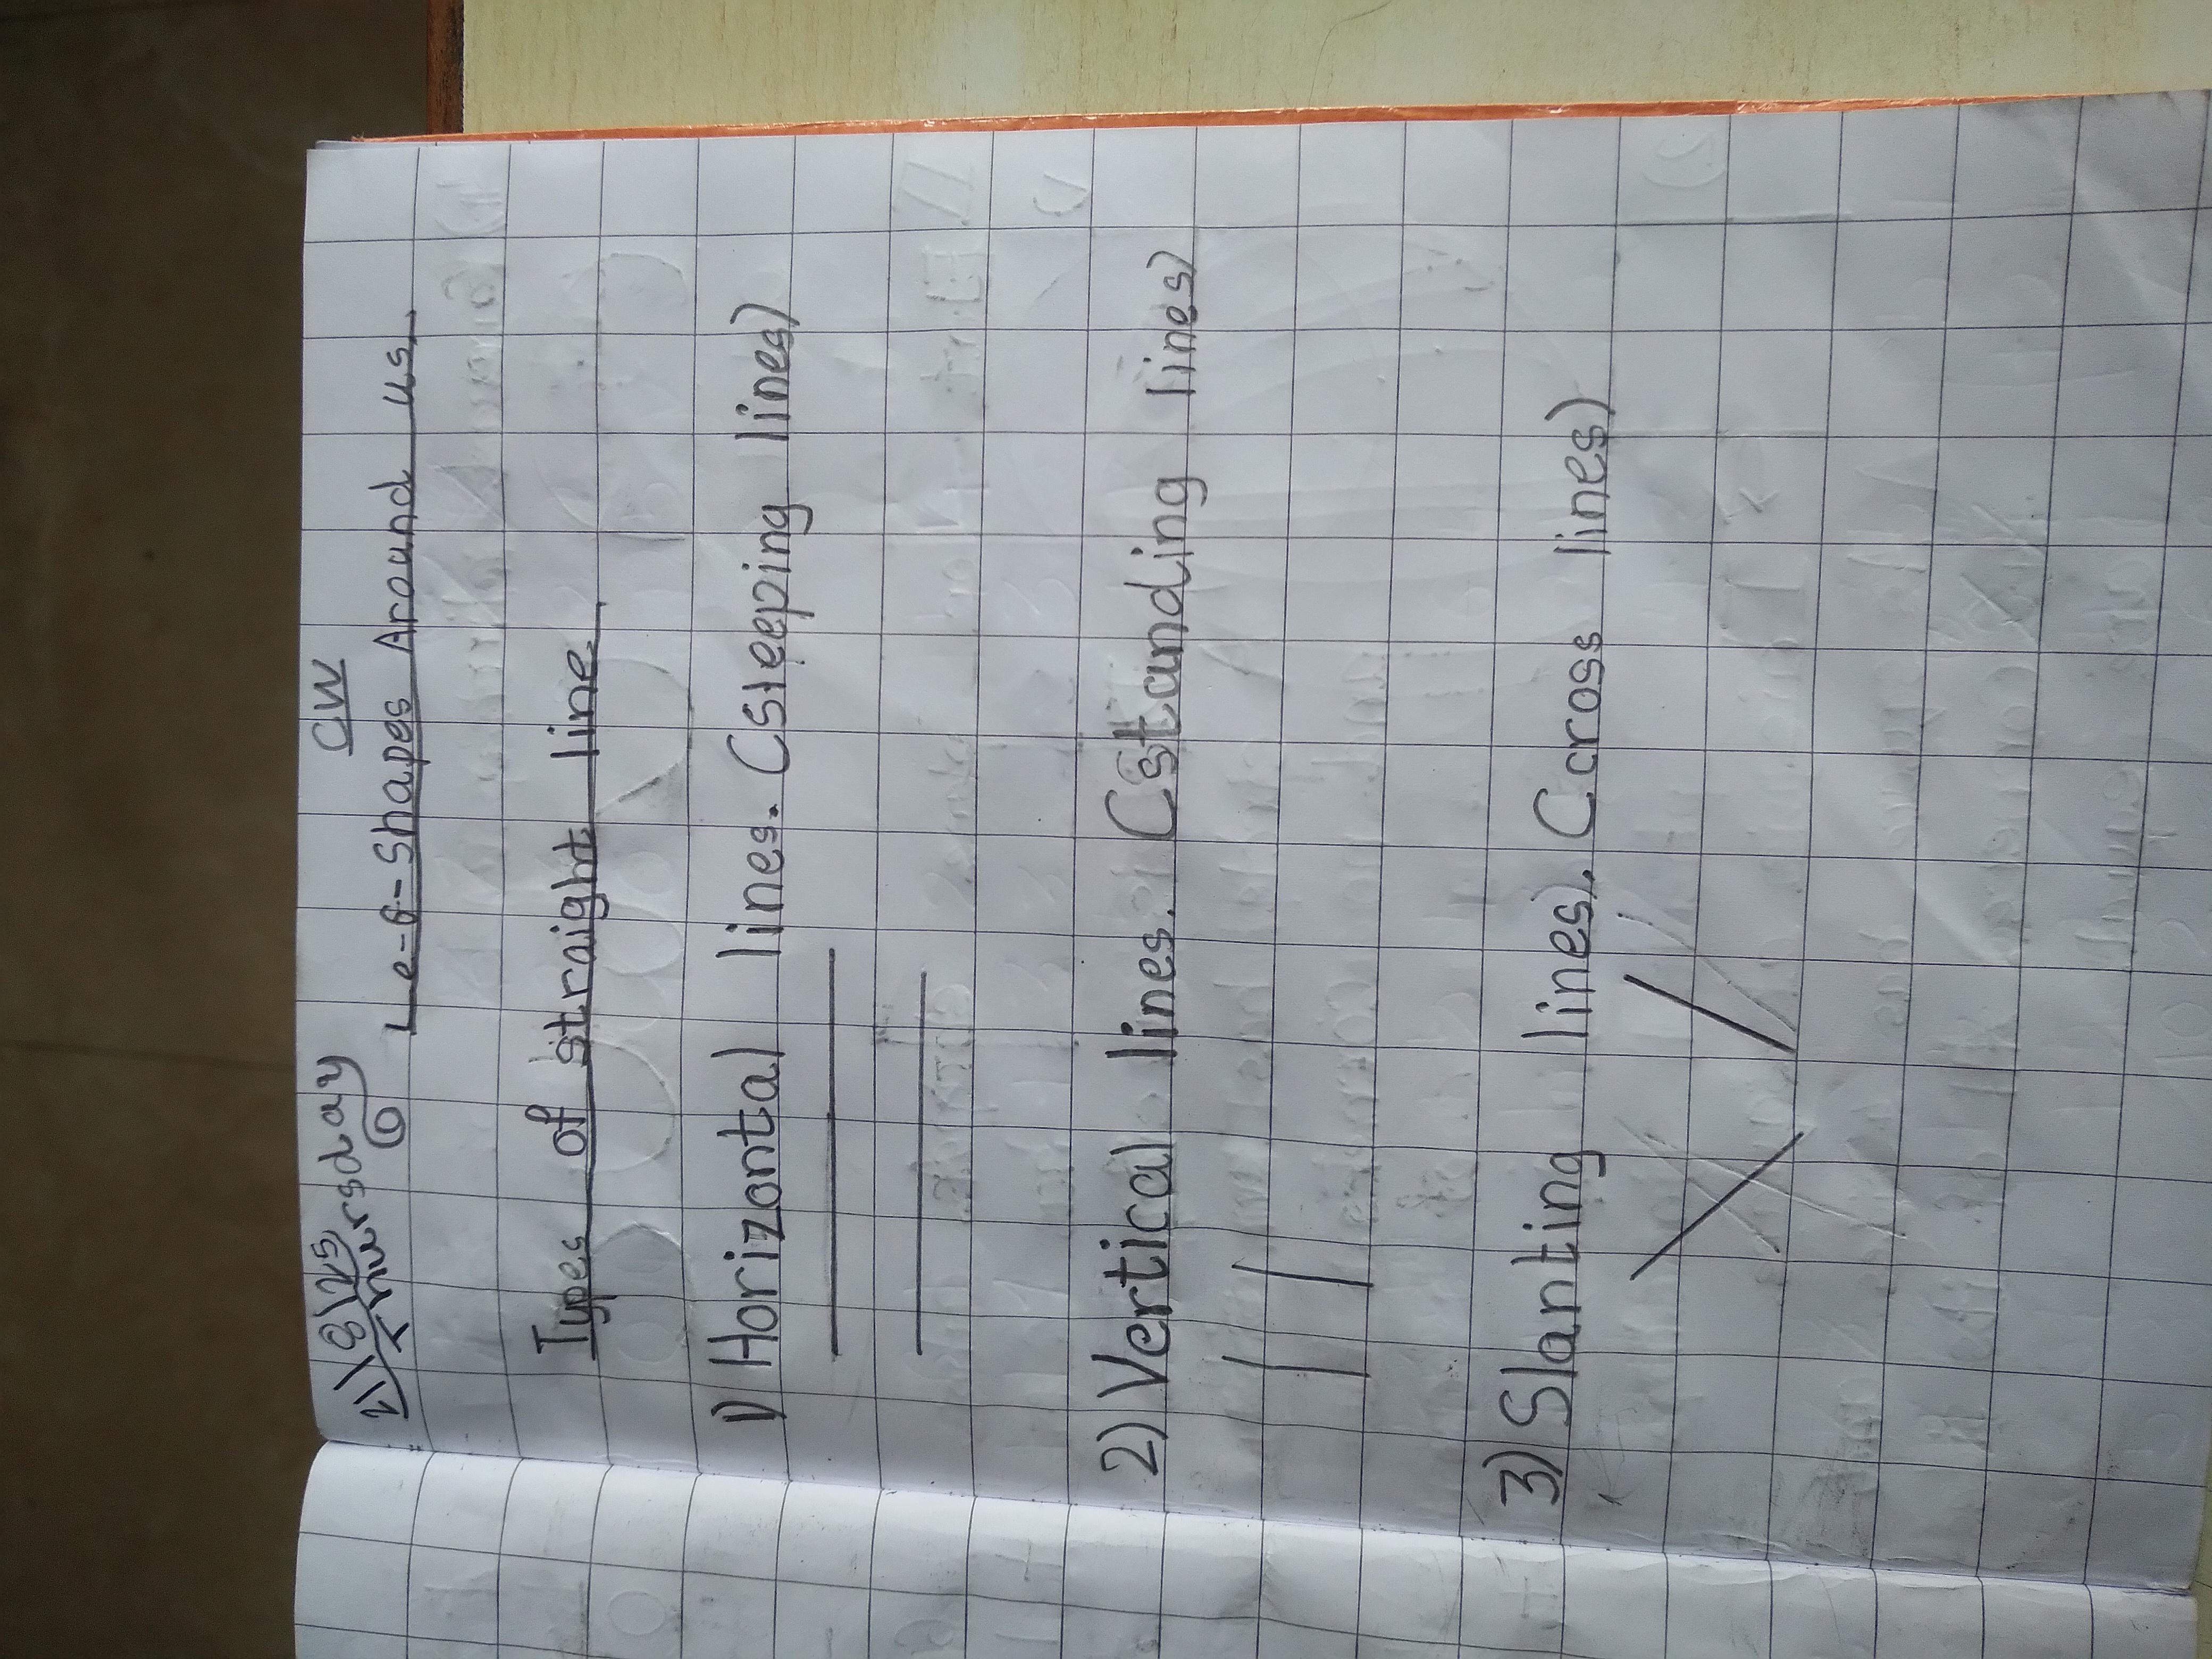 21/8/25 CW
Thursday
6 Le-6-Shapes Around us
Types of straight line
1) Horizontal lines. (Sleeping lines)
2) Vertical lines. (Standing lines)
3) Slanting lines). (cross lines)